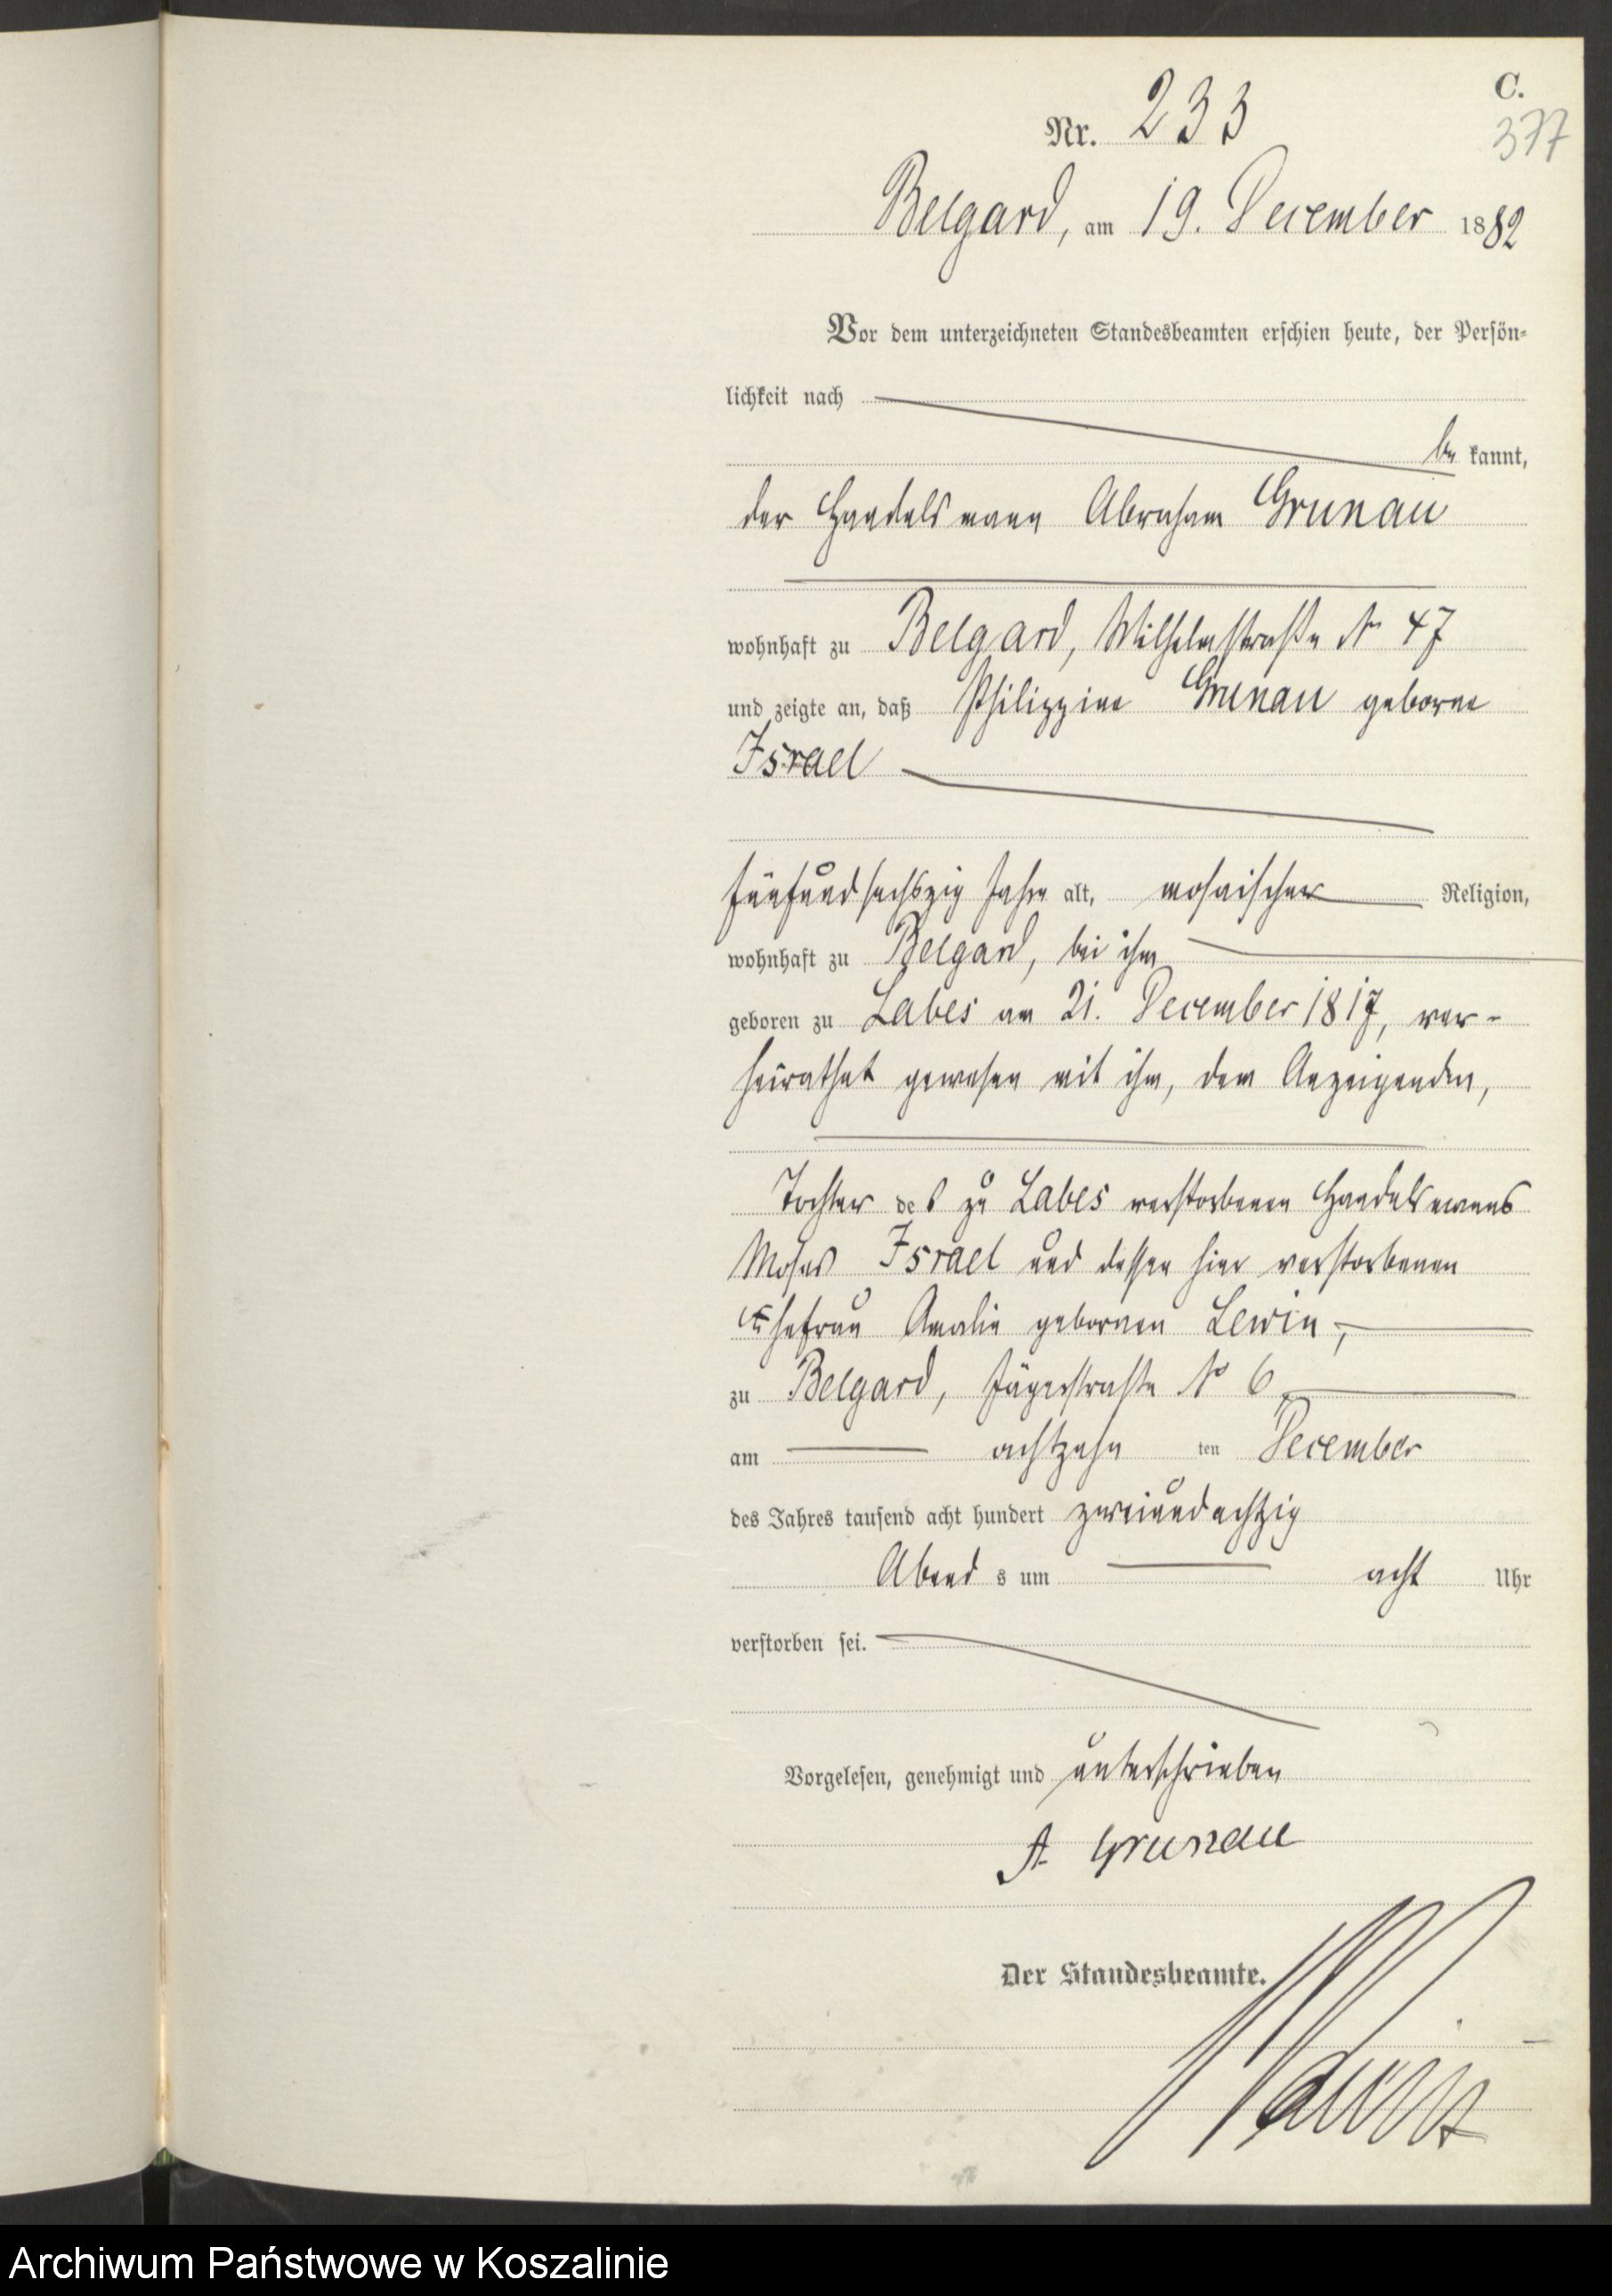 C.
377
Nr. 233
Belgard, am 19. December 1882
Vor dem unterzeichneten Standesbeamten erschien heute, der Persön-
lichkeit nach
be kannt,
der Handelsmann Abraham Grunau
wohnhaft zu Belgard, Wilhelmstraße № 47
und zeigte an, daß Philippine Grunau geborne
Israel
fünfundsechszig Jahre alt, mosaischer Religion,
wohnhaft zu Belgard, bei ihm
geboren zu Labes am 21. December 1817, ver-
heirathet gewesen mit ihm, dem Anzeigenden,
Tochter des zu Labes verstorbenen Handelsmanns
Moses Israel und dessen hier verstorbenen
Ehefrau Amalie gebornen Lewin,
zu Belgard, Jägerstraße № 6,
am achtzehn ten December
des Jahres tausend acht hundert zweiundachtzig
Abend s um acht Uhr
verstorben sei.
Vorgelesen, genehmigt und unterschrieben
A. Grunau
Der Standesbeamte.
Archiwum Państwowe w Koszalinie